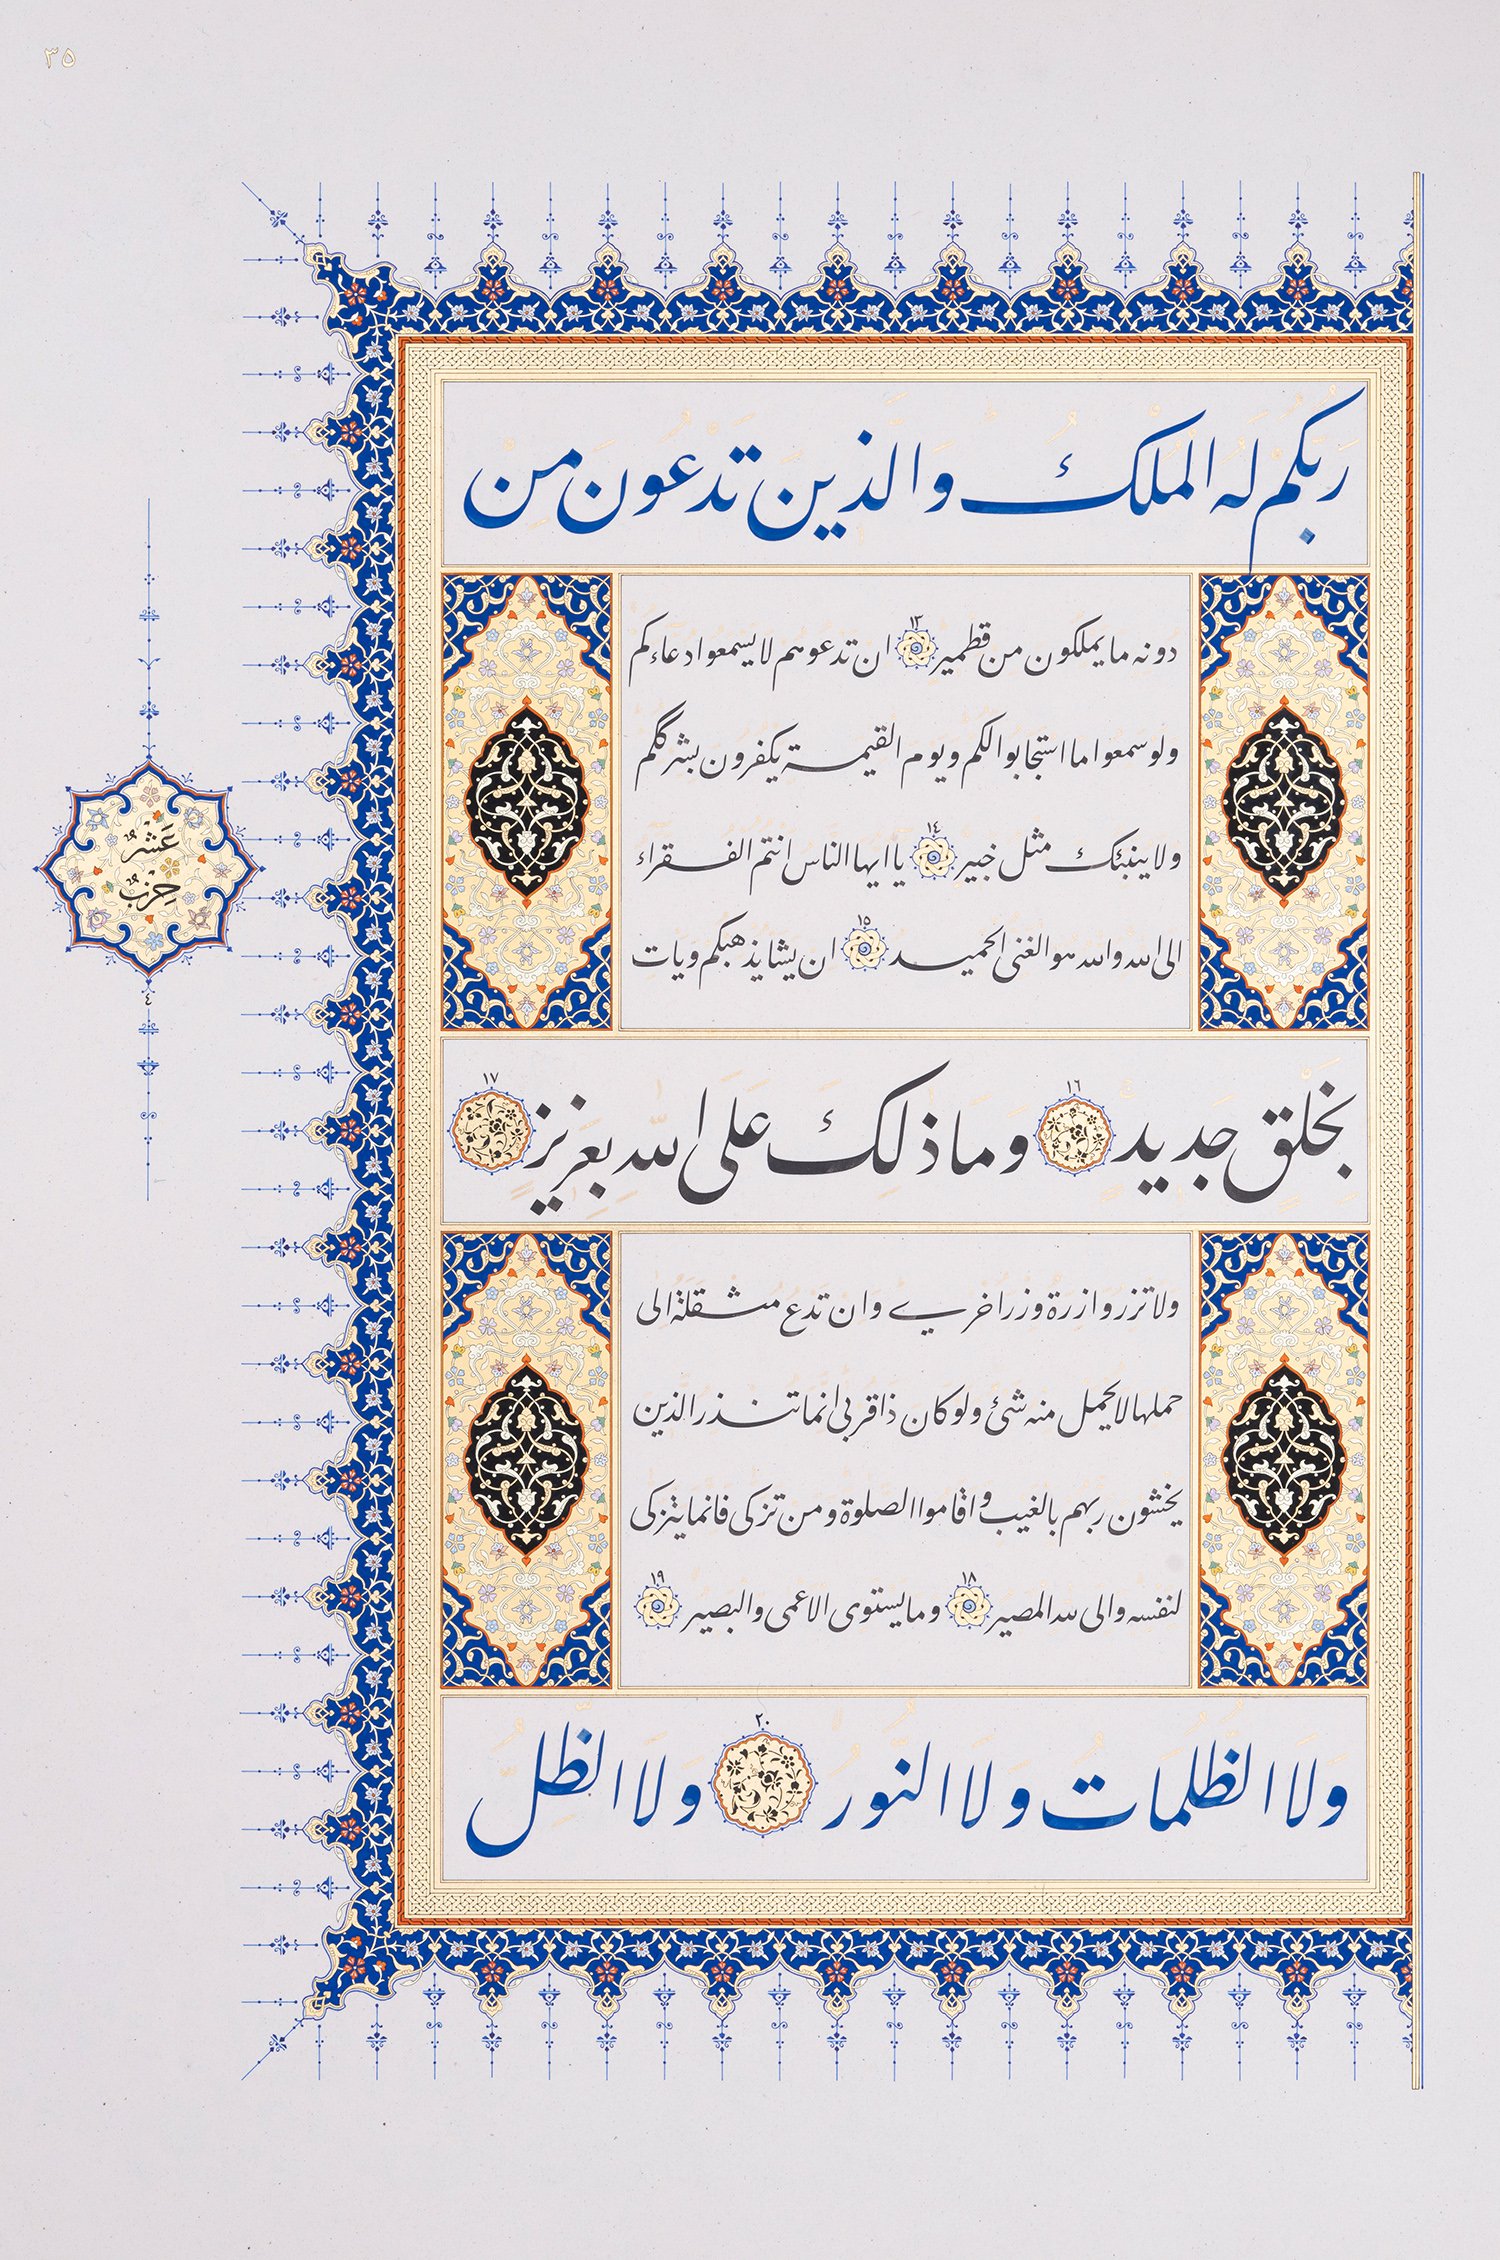 ٣٥
رَبُّكُمْ لَهُ الْمُلْكُ وَالَّذِينَ تَدْعُونَ مِنْ
دونه ما يملكون من قطمير ١٣ ان تدعوهم لا يسمعوا دعاءكم
ولو سمعوا ما استجابوا لكم ويوم القيمة يكفرون بشرككم
ولا ينبئك مثل خبير ١٤ يا ايها الناس انتم الفقراء
الى الله والله هو الغنى الحميد ١٥ ان يشا يذهبكم ويات
بِخَلْقٍ جَدِيدٍ ١٦ وَمَا ذَلِكَ عَلَى اللّٰهِ بِعَزِيزٍ ١٧
ولا تزر وازرة وزر اخرى وان تدع مثقلة الى
حملها لا يحمل منه شئ ولو كان ذا قربى انما تنذر الذين
يخشون ربهم بالغيب واقاموا الصلوة ومن تزكى فانما يتزكى
لنفسه والى الله المصير ١٨ وما يستوى الاعمى والبصير ١٩
وَلَا الظُّلُمَاتُ وَلَا النُّورُ ٢٠ وَلَا الظِّلُّ
عَشْرٌ
حِزْبٌ
٤